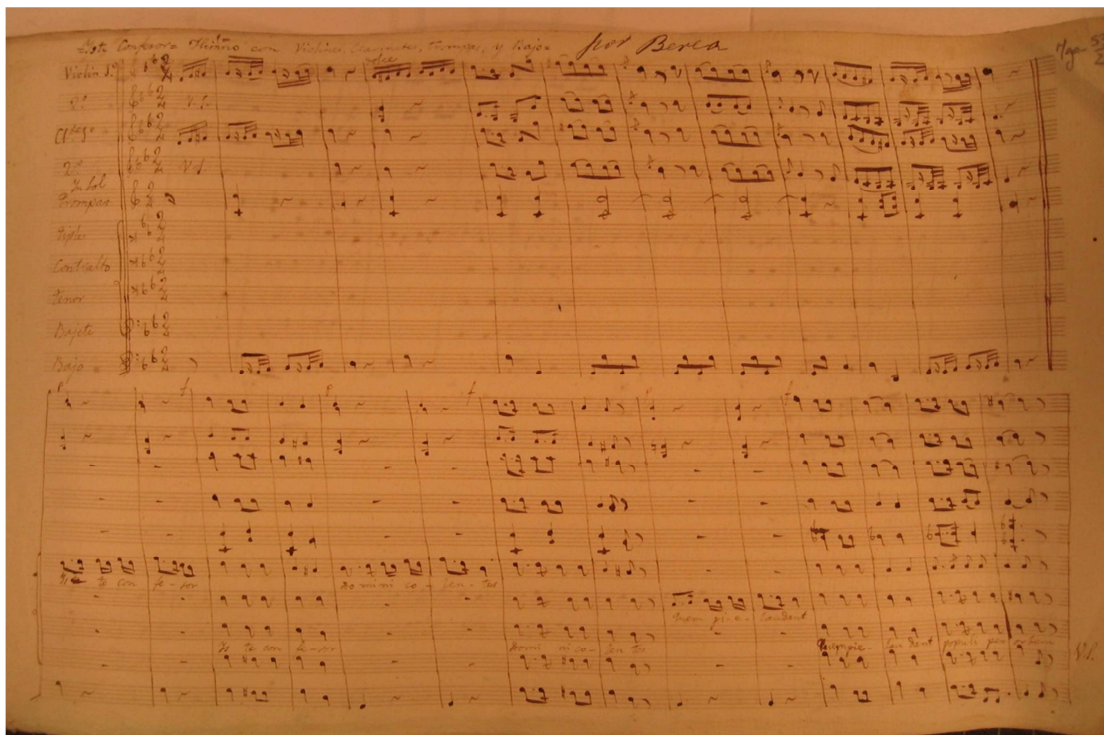 Iste Confesor= Himno con Violines, Clarinetes, Trompas, y Bajo= por Berea
Violin 1º
2º V.S.
Cltes 1º
2º V.S.
In Sol
Trompas
Tiple
Contralto
Tenor
Bajete
Bajo
Is te con fe-sor Domini co-len-tes
quem pi-e- laudant
Is te con fe-sor Domi ni co- len tes Quem pie- lau dant populi per orbem V.S.